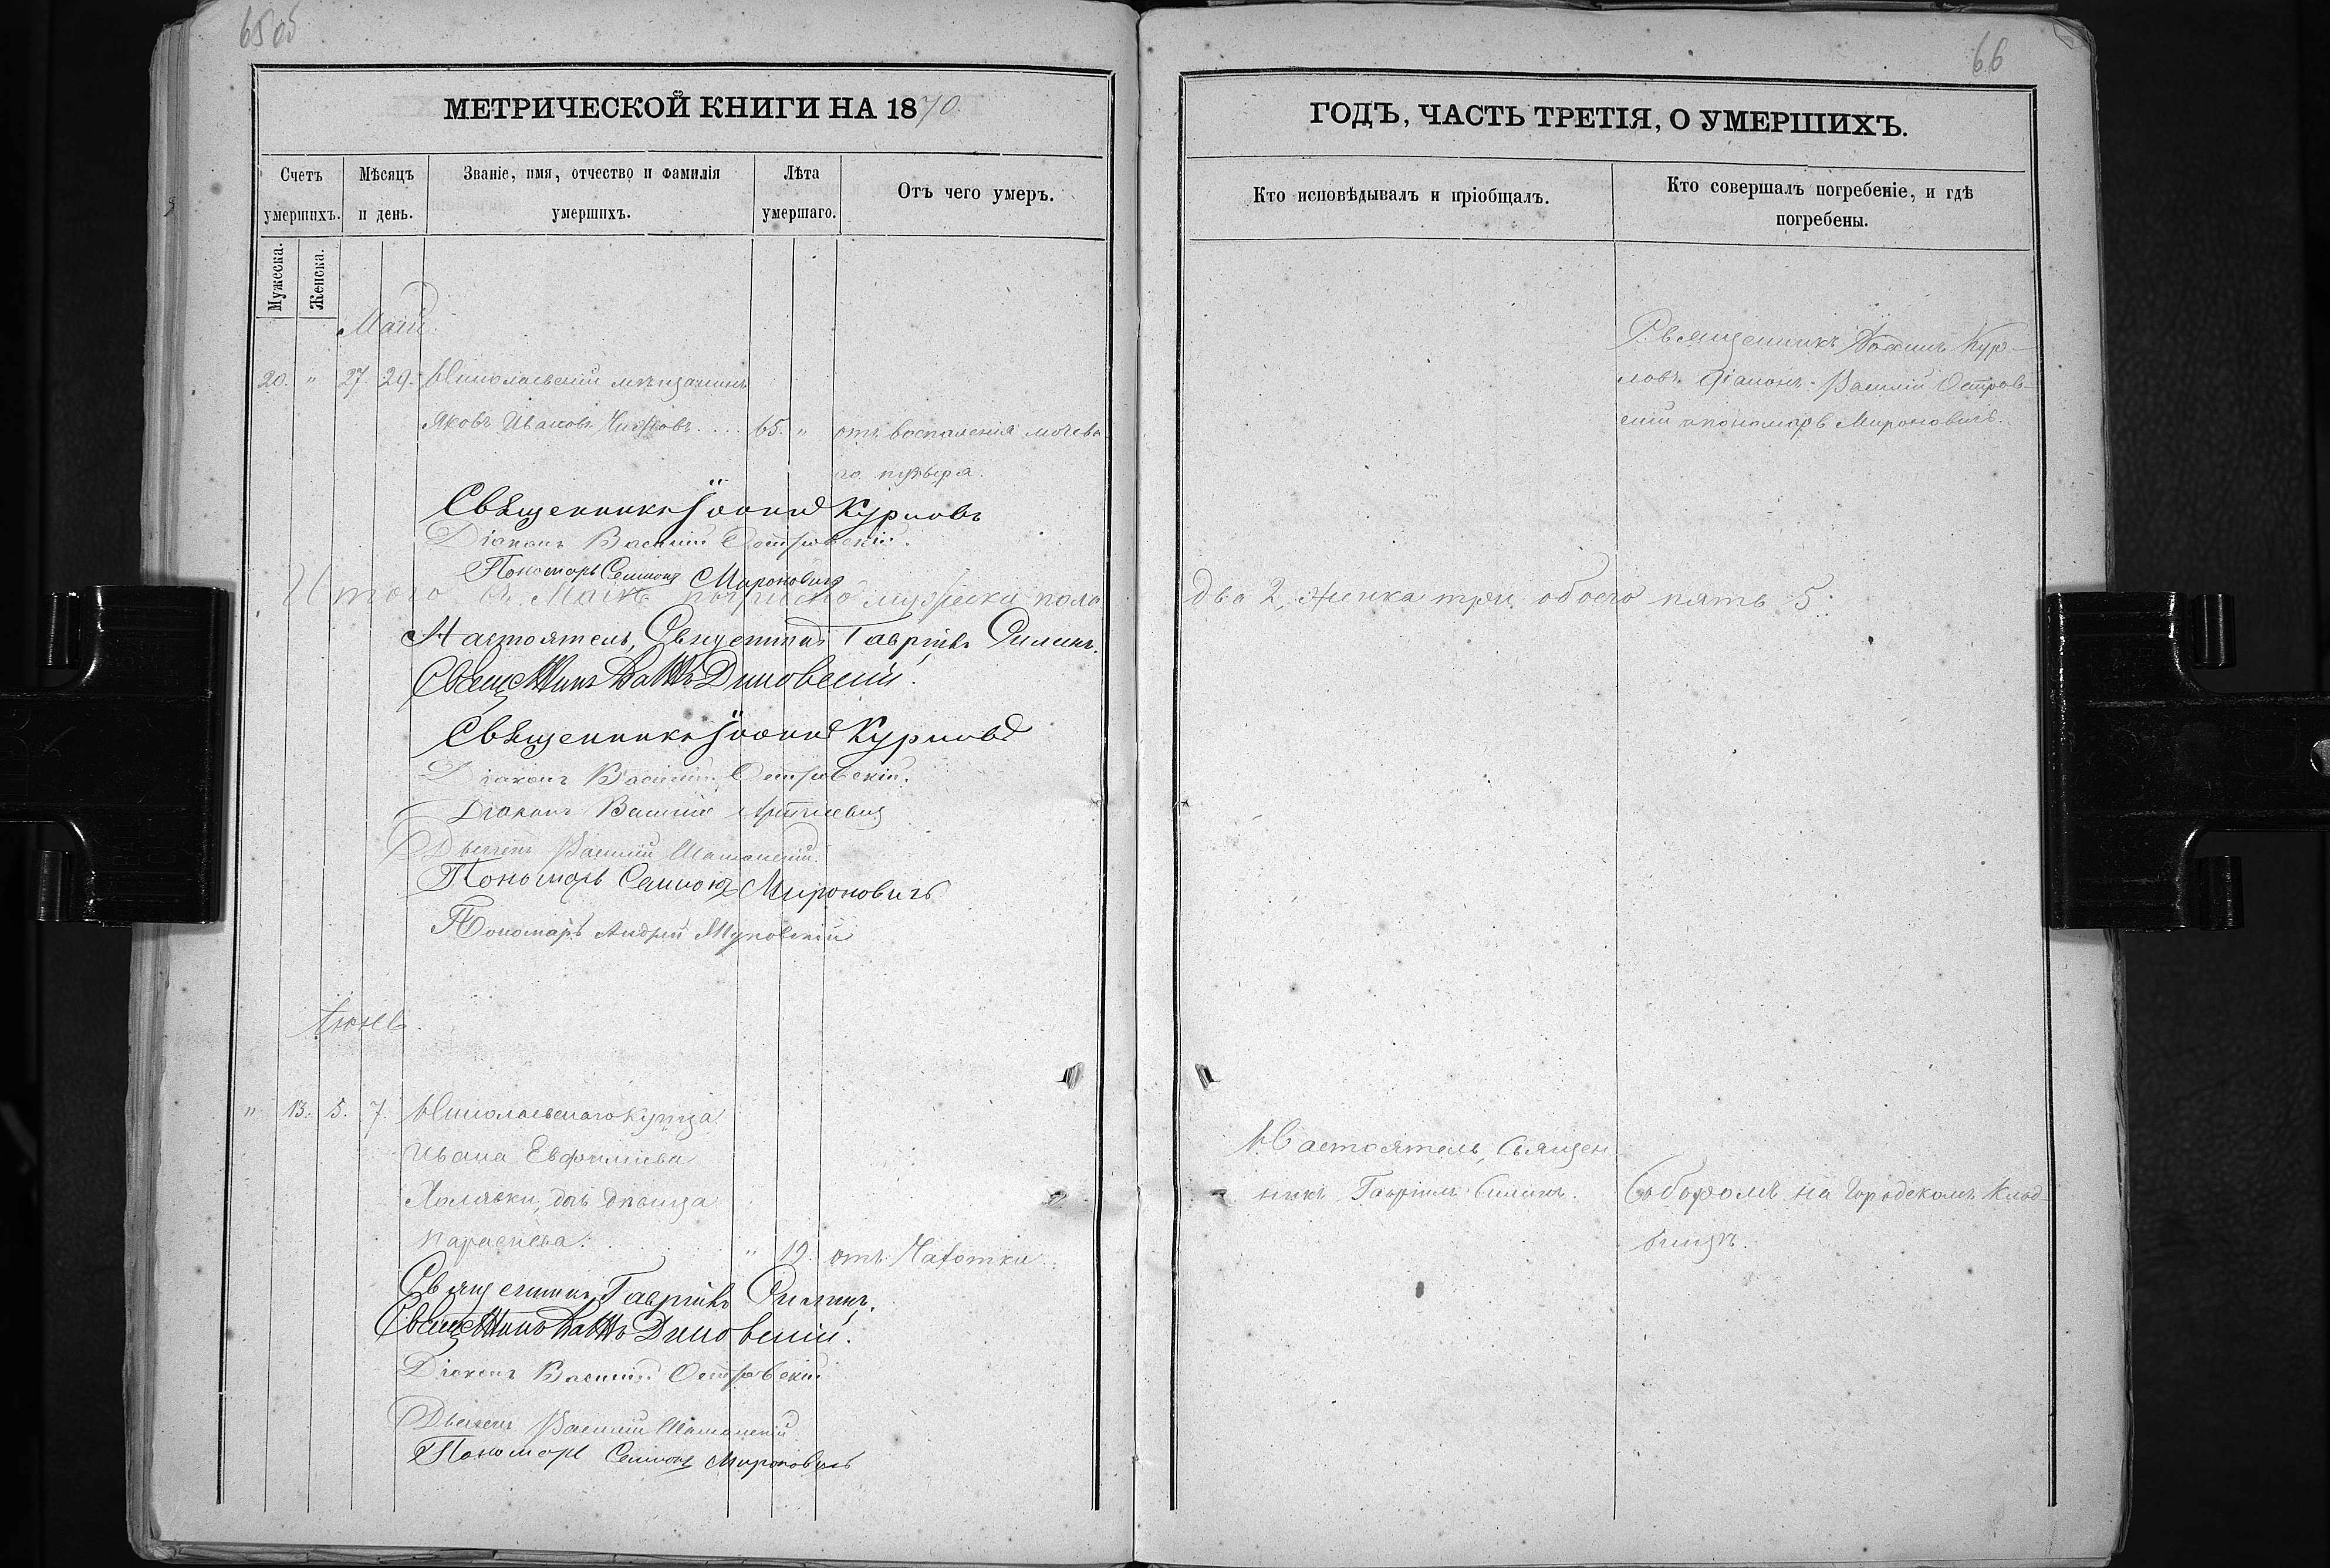 65 об
МЕТРИЧЕСКОЙ КНИГИ НА 1870.
Счетъ умершихъ.
Мѣсяцъ и день.
Званіе, имя, отчество и фамилія умершихъ.
Лѣта умершаго.
Отъ чего умеръ.
Мужеска.
Женска.
Май.
20. " 27. 29. Николаевскій мѣщанинъ
Яковъ Ивановъ 65. " отъ воспаленія мочева
го пузыря.
Священникъ Іоаннъ Курловъ
Діаконъ Василій Островскій.
Пономарь Симеонъ Мироновичъ
Итого въ Маѣ мужеска пола
Настоятель, Священникъ Гавріилъ Силинъ.
Священникъ
Священникъ Іоаннъ Курловъ
Діаконъ Василій Островскій.
Діаконъ Василій
Василій
Пономарь Симеонъ Мироновичъ
Пономарь Андрей
Іюнь.
" 13. 5. 7. Николаевскаго купца
Ивана Евфиміева
дочь дѣвица
Параскева. " 19. отъ Чахотки.
Священникъ Гавріилъ Силинъ.
Священникъ
Діаконъ Василій Островскій
Василій
Пономарь Симеонъ Мироновичъ
66
ГОДЪ, ЧАСТЬ ТРЕТІЯ, О УМЕРШИХЪ.
Кто исповѣдывалъ и пріобщалъ.
Кто совершалъ погребеніе, и гдѣ погребены.
Священникъ Іоаннъ Кур-
ловъ Діаконъ Василій Остров-
скій пономарь Мироновичъ.
два 2, женска три обоего пять 5.
Настоятель, Священ
никъ Гавріилъ Силинъ.
Соборомъ на Городскомъ Клад-
бищѣ.